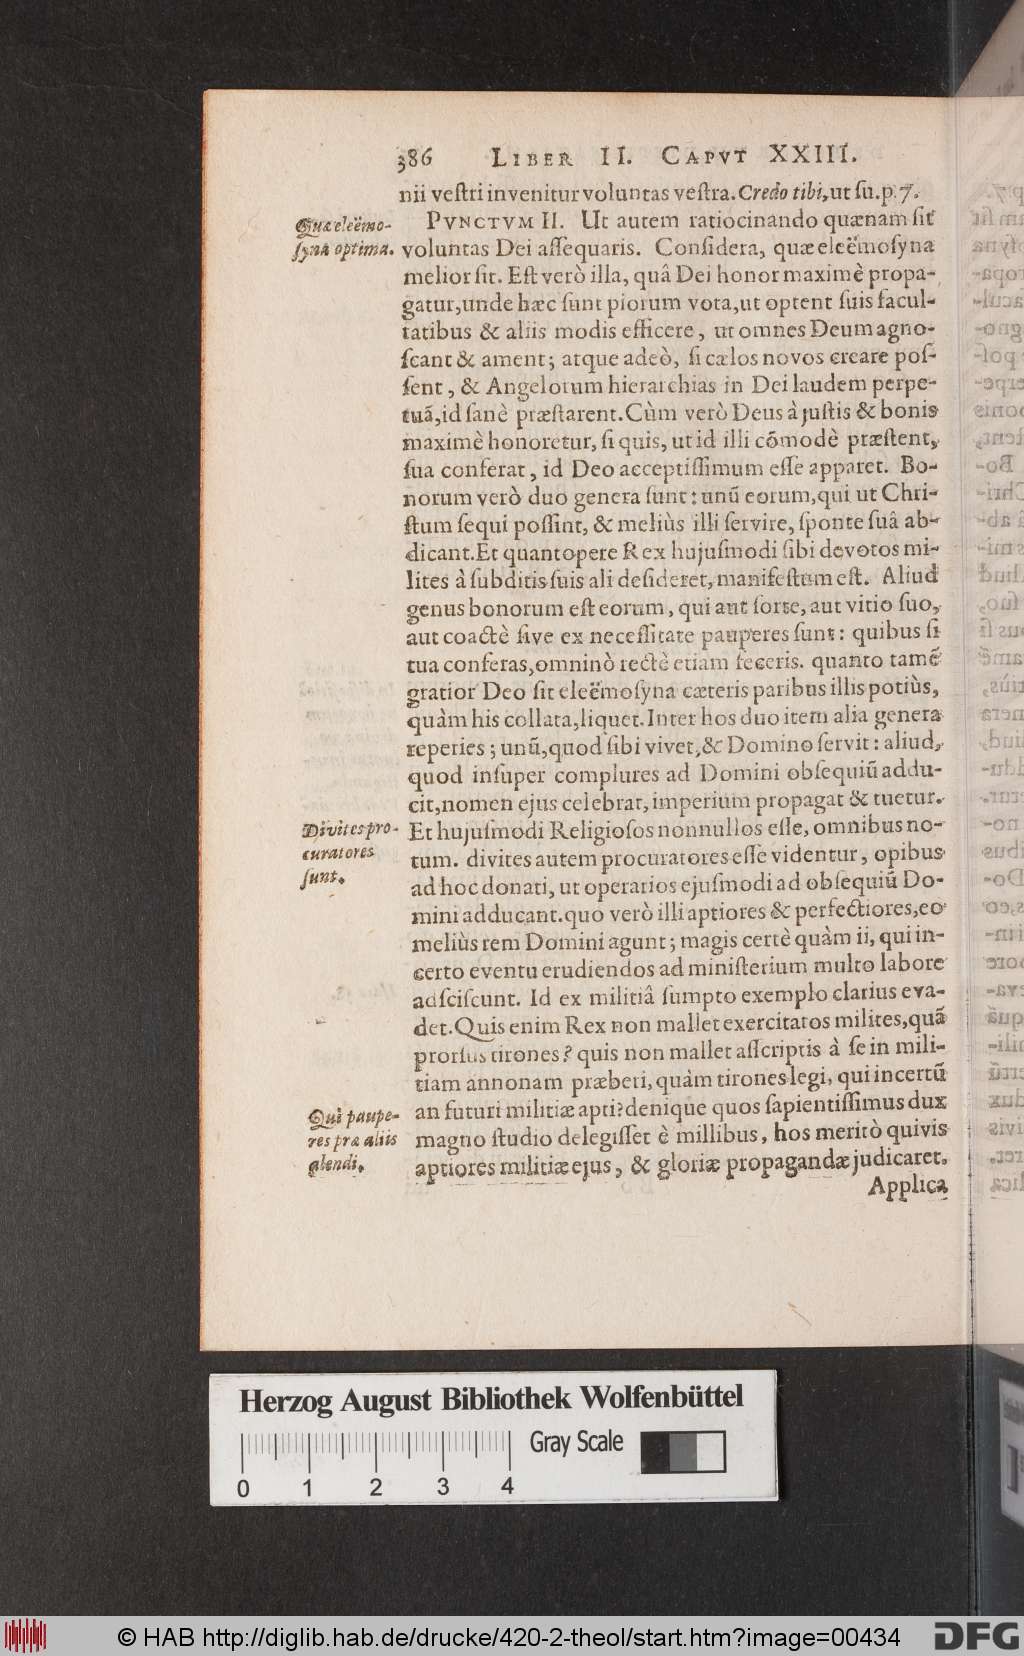 386 LIBER II. CAPVT XXIII.
nii veſtri invenitur voluntas veſtra. Credo tibi, ut ſu. p. 7.
PVNCTVM II. Ut autem ratiocinando quænam ſit
Quæ eleëmo-
ſyna optima.
voluntas Dei aſſequaris. Conſidera, quæ eleëmoſyna
melior ſit. Eſt verò illa, quâ Dei honor maximè propa-
gatur, unde hæc ſunt piorum vota, ut optent ſuis facul-
tatibus & aliis modis efficere, ut omnes Deum agno-
ſcant & ament; atque adeò, ſi cælos novos creare poſ-
ſent, & Angelorum hierarchias in Dei laudem perpe-
tuã, id ſanè præſtarent. Cùm verò Deus à juſtis & bonis
maximè honoretur, ſi quis, ut id illi cõmodè præſtent,
ſua conferat, id Deo acceptiſſimum eſſe apparet. Bo-
norum verò duo genera ſunt: unũ eorum, qui ut Chri-
ſtum ſequi poſſint, & meliùs illi ſervire, ſponte ſuâ ab-
dicant. Et quantopere Rex hujuſmodi ſibi devotos mi-
lites à ſubditis ſuis ali deſideret, manifeſtum eſt. Aliud
genus bonorum eſt eorum, qui aut ſorte, aut vitio ſuo,
aut coactè ſive ex neceſſitate pauperes ſunt: quibus ſi
tua conferas, omninò rectè etiam feceris. quanto tamẽ
gratior Deo ſit eleëmoſyna cæteris paribus illis potiùs,
quàm his collata, liquet. Inter hos duo item alia genera
reperies; unũ, quod ſibi vivet, & Domino ſervit: aliud,
quod inſuper complures ad Domini obſequiũ addu-
cit, nomen ejus celebrat, imperium propagat & tuetur.
Divites pro-
curatores
ſunt.
Et hujuſmodi Religioſos nonnullos eſſe, omnibus no-
tum. divites autem procuratores eſſe videntur, opibus
ad hoc donati, ut operarios ejuſmodi ad obſequiũ Do-
mini adducant. quo verò illi aptiores & perfectiores, eo
meliùs rem Domini agunt; magis certè quàm ii, qui in-
certo eventu erudiendos ad miniſterium multo labore
adſciſcunt. Id ex militiâ ſumpto exemplo clarius eva-
det. Quis enim Rex non mallet exercitatos milites, quã
prorſus tirones? quis non mallet aſſcriptis à ſe in mili-
tiam annonam præberi, quàm tirones legi, qui incertũ
Qui paupe-
res præ aliis
alendi.
an futuri militiæ apti? denique quos ſapientiſſimus dux
magno ſtudio delegiſſet è millibus, hos meritò quivis
aptiores militiæ ejus, & gloriæ propagandæ judicaret.
Applica
Herzog August Bibliothek Wolfenbüttel
Gray Scale
0 1 2 3 4
© HAB http://diglib.hab.de/drucke/420-2-theol/start.htm?image=00434
DFG